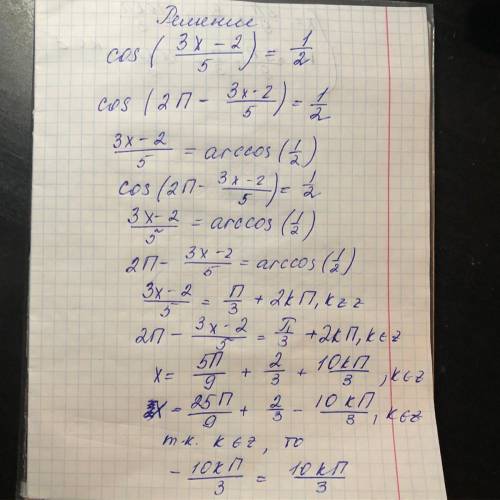 Решение
cos( (3x-2)/5 ) = 1/2
cos( 2П - (3x-2)/5 ) = 1/2
(3x-2)/5 = arccos(1/2)
cos(2П - (3x-2)/5) = 1/2
(3x-2)/5 = arccos(1/2)
2П - (3x-2)/5 = arccos(1/2)
(3x-2)/5 = П/3 + 2кП, к∈z
2П - (3x-2)/5 = П/3 + 2кП, к∈z
x = 5П/9 + 2/3 + 10кП/3, к∈z
x = 25П/9 + 2/3 - 10кП/3, к∈z
т.к. к∈z, то
- 10кП/3 = 10кП/3